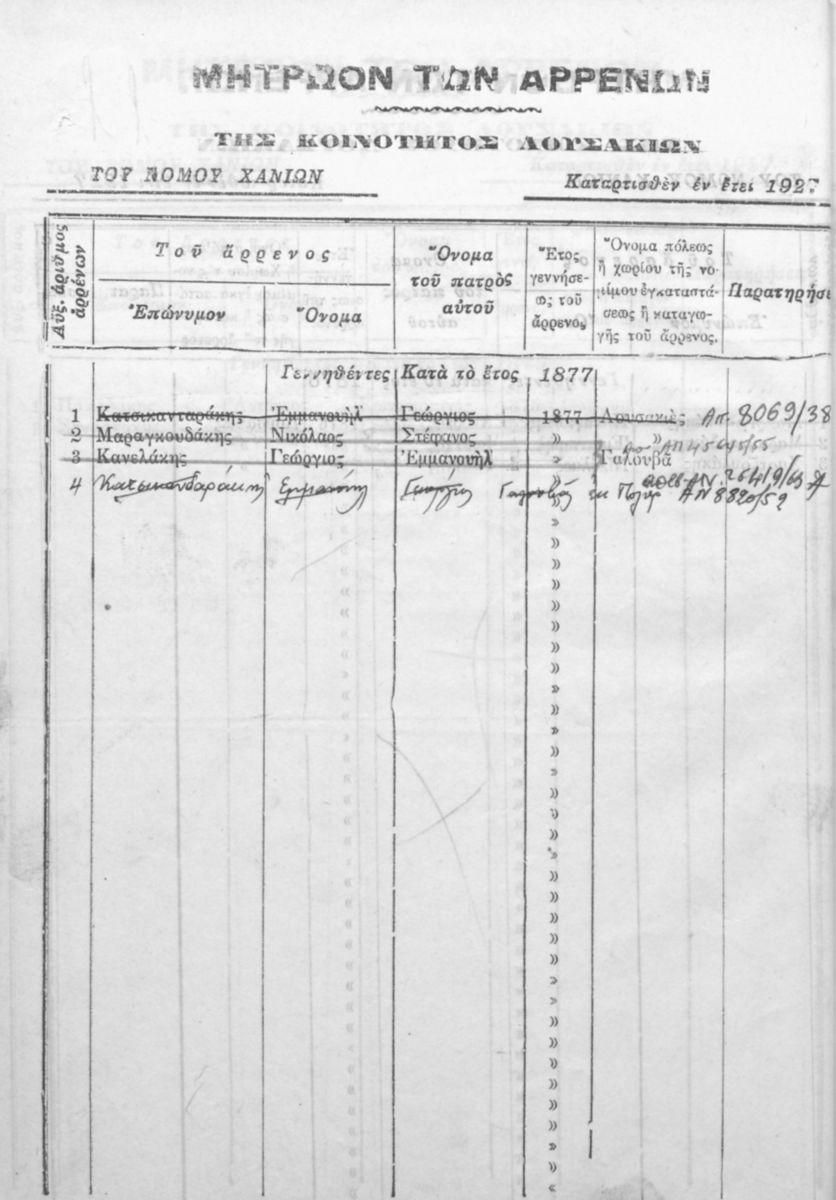 ΜΗΤΡΩΟΝ ΤΩΝ ΑΡΡΕΝΩΝ
ΤΗΣ ΚΟΙΝΟΤΗΤΟΣ ΛΟΥΣΑΚΙΩΝ
ΤΟΥ ΝΟΜΟΥ ΧΑΝΙΩΝ Καταρτισθὲν ἐν ἔτει 1927
Αὔξ. ἀριθμος ἀρρένων
Τοῦ ἄρρενος
Ἐπώνυμον Ὄνομα
Ὄνομα
τοῦ πατρὸς
αὐτοῦ
Ἔτος
γεννήσε-
ως τοῦ
ἄρρενος
Ὄνομα πόλεως
ἢ χωρίου τῆς νο-
μίμου ἐγκαταστά-
σεως ἢ καταγω-
γῆς τοῦ ἄρρενος.
Παρατηρήσε
Γεννηθέντες Κατὰ τὸ ἔτος 1877
1 Κατσικανταράκης Ἐμμανουὴλ Γεώργιος 1877 Λουσακιὲς Απ. 8069/38
2 Μαραγκουδάκης Νικόλαος Στέφανος » »
3 Κανελάκης Γεώργιος Ἐμμανουὴλ » Γαλουβᾶ
4 Κατσικανδαράκης Εμμανουήλ Γεώργιος ΑΠ 8820/52